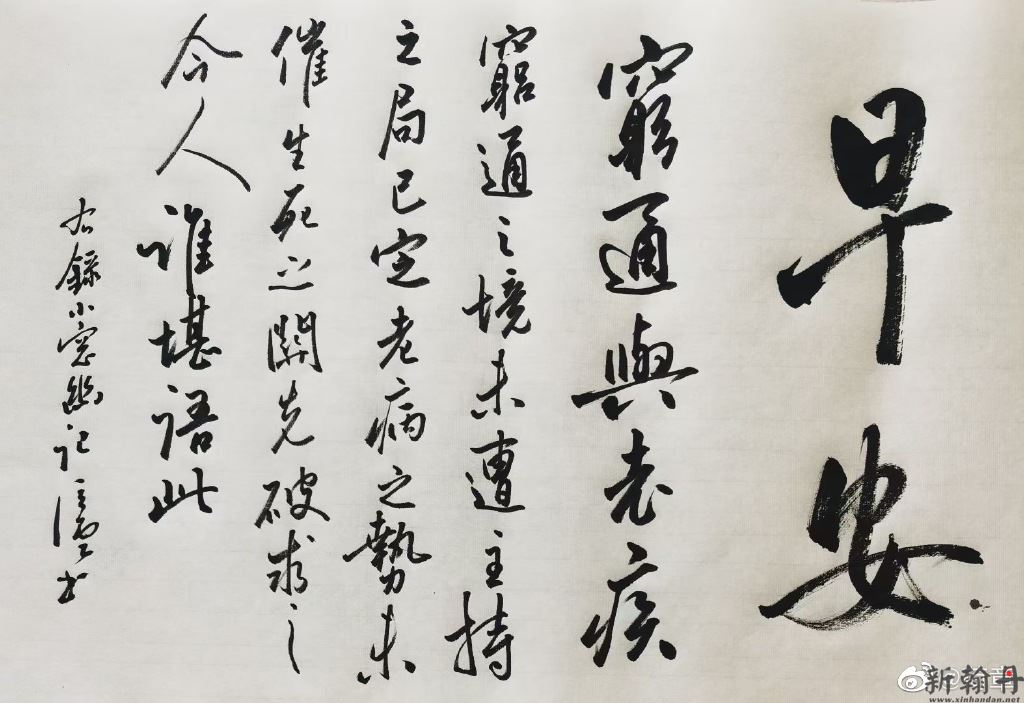 早安
窮通與老疾
窮通之境未遭主持
之局已定老病之勢未
催生死之關先破求之
今人誰堪語此
右錄小窗幽記 書
新翰丹
www.xinhandan.net